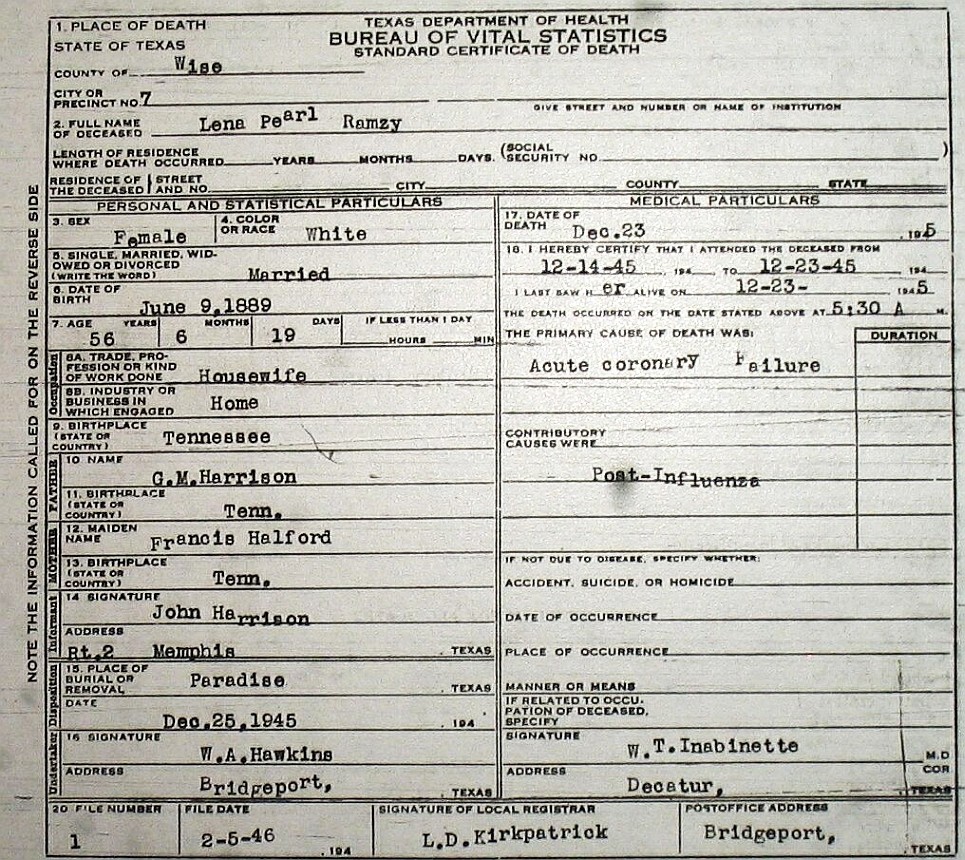 TEXAS DEPARTMENT OF HEALTH
BUREAU OF VITAL STATISTICS
STANDARD CERTIFICATE OF DEATH
1. PLACE OF DEATH
STATE OF TEXAS
COUNTY OF Wise
CITY OR
PRECINCT NO. 7
GIVE STREET AND NUMBER OR NAME OF INSTITUTION
2. FULL NAME
OF DECEASED Lena Pearl Ramzy
LENGTH OF RESIDENCE
WHERE DEATH OCCURRED YEARS MONTHS DAYS. (SOCIAL SECURITY NO. )
RESIDENCE OF THE DECEASED STREET AND NO. CITY COUNTY STATE
NOTE THE INFORMATION CALLED FOR ON THE REVERSE SIDE
PERSONAL AND STATISTICAL PARTICULARS
3. SEX Female
4. COLOR OR RACE White
5. SINGLE, MARRIED, WID-
OWED OR DIVORCED
(WRITE THE WORD) Married
6. DATE OF
BIRTH June 9,1889
7. AGE YEARS MONTHS DAYS IF LESS THAN 1 DAY
56 6 19 HOURS MIN
Occupation
8A. TRADE, PRO-
FESSION OR KIND
OF WORK DONE Housewife
8B. INDUSTRY OR
BUSINESS IN
WHICH ENGAGED Home
9. BIRTHPLACE
(STATE OR
COUNTRY) Tennessee
FATHER
10 NAME
G.M.Harrison
11. BIRTHPLACE
(STATE OR
COUNTRY) Tenn.
MOTHER
12. MAIDEN
NAME Francis Halford
13. BIRTHPLACE
(STATE OR
COUNTRY) Tenn.
Informant
14 SIGNATURE
John Harrison
ADDRESS
Rt.2 Memphis , TEXAS
Undertaker Disposition
15. PLACE OF
BURIAL OR
REMOVAL Paradise , TEXAS
DATE
Dec.25,1945 , 194
16 SIGNATURE
W.A.Hawkins
ADDRESS
Bridgeport, , TEXAS
MEDICAL PARTICULARS
17. DATE OF
DEATH Dec.23 , 1945
18. I HEREBY CERTIFY THAT I ATTENDED THE DECEASED FROM
12-14-45 , 194 TO 12-23-45 , 194
I LAST SAW H er ALIVE ON 12-23- 1945
THE DEATH OCCURRED ON THE DATE STATED ABOVE AT 5:30 A M.
THE PRIMARY CAUSE OF DEATH WAS: DURATION
Acute coronary Failure
CONTRIBUTORY
CAUSES WERE
Post-Influenza
IF NOT DUE TO DISEASE, SPECIFY WHETHER:
ACCIDENT, SUICIDE, OR HOMICIDE
DATE OF OCCURRENCE
PLACE OF OCCURRENCE
MANNER OR MEANS
IF RELATED TO OCCU-
PATION OF DECEASED,
SPECIFY
SIGNATURE
W.T.Inabinette M.D
ADDRESS COR
Decatur, , TEXAS
20 FILE NUMBER
1
FILE DATE
2-5-46 , 194
SIGNATURE OF LOCAL REGISTRAR
L.D.Kirkpatrick
POSTOFFICE ADDRESS
Bridgeport, , TEXAS